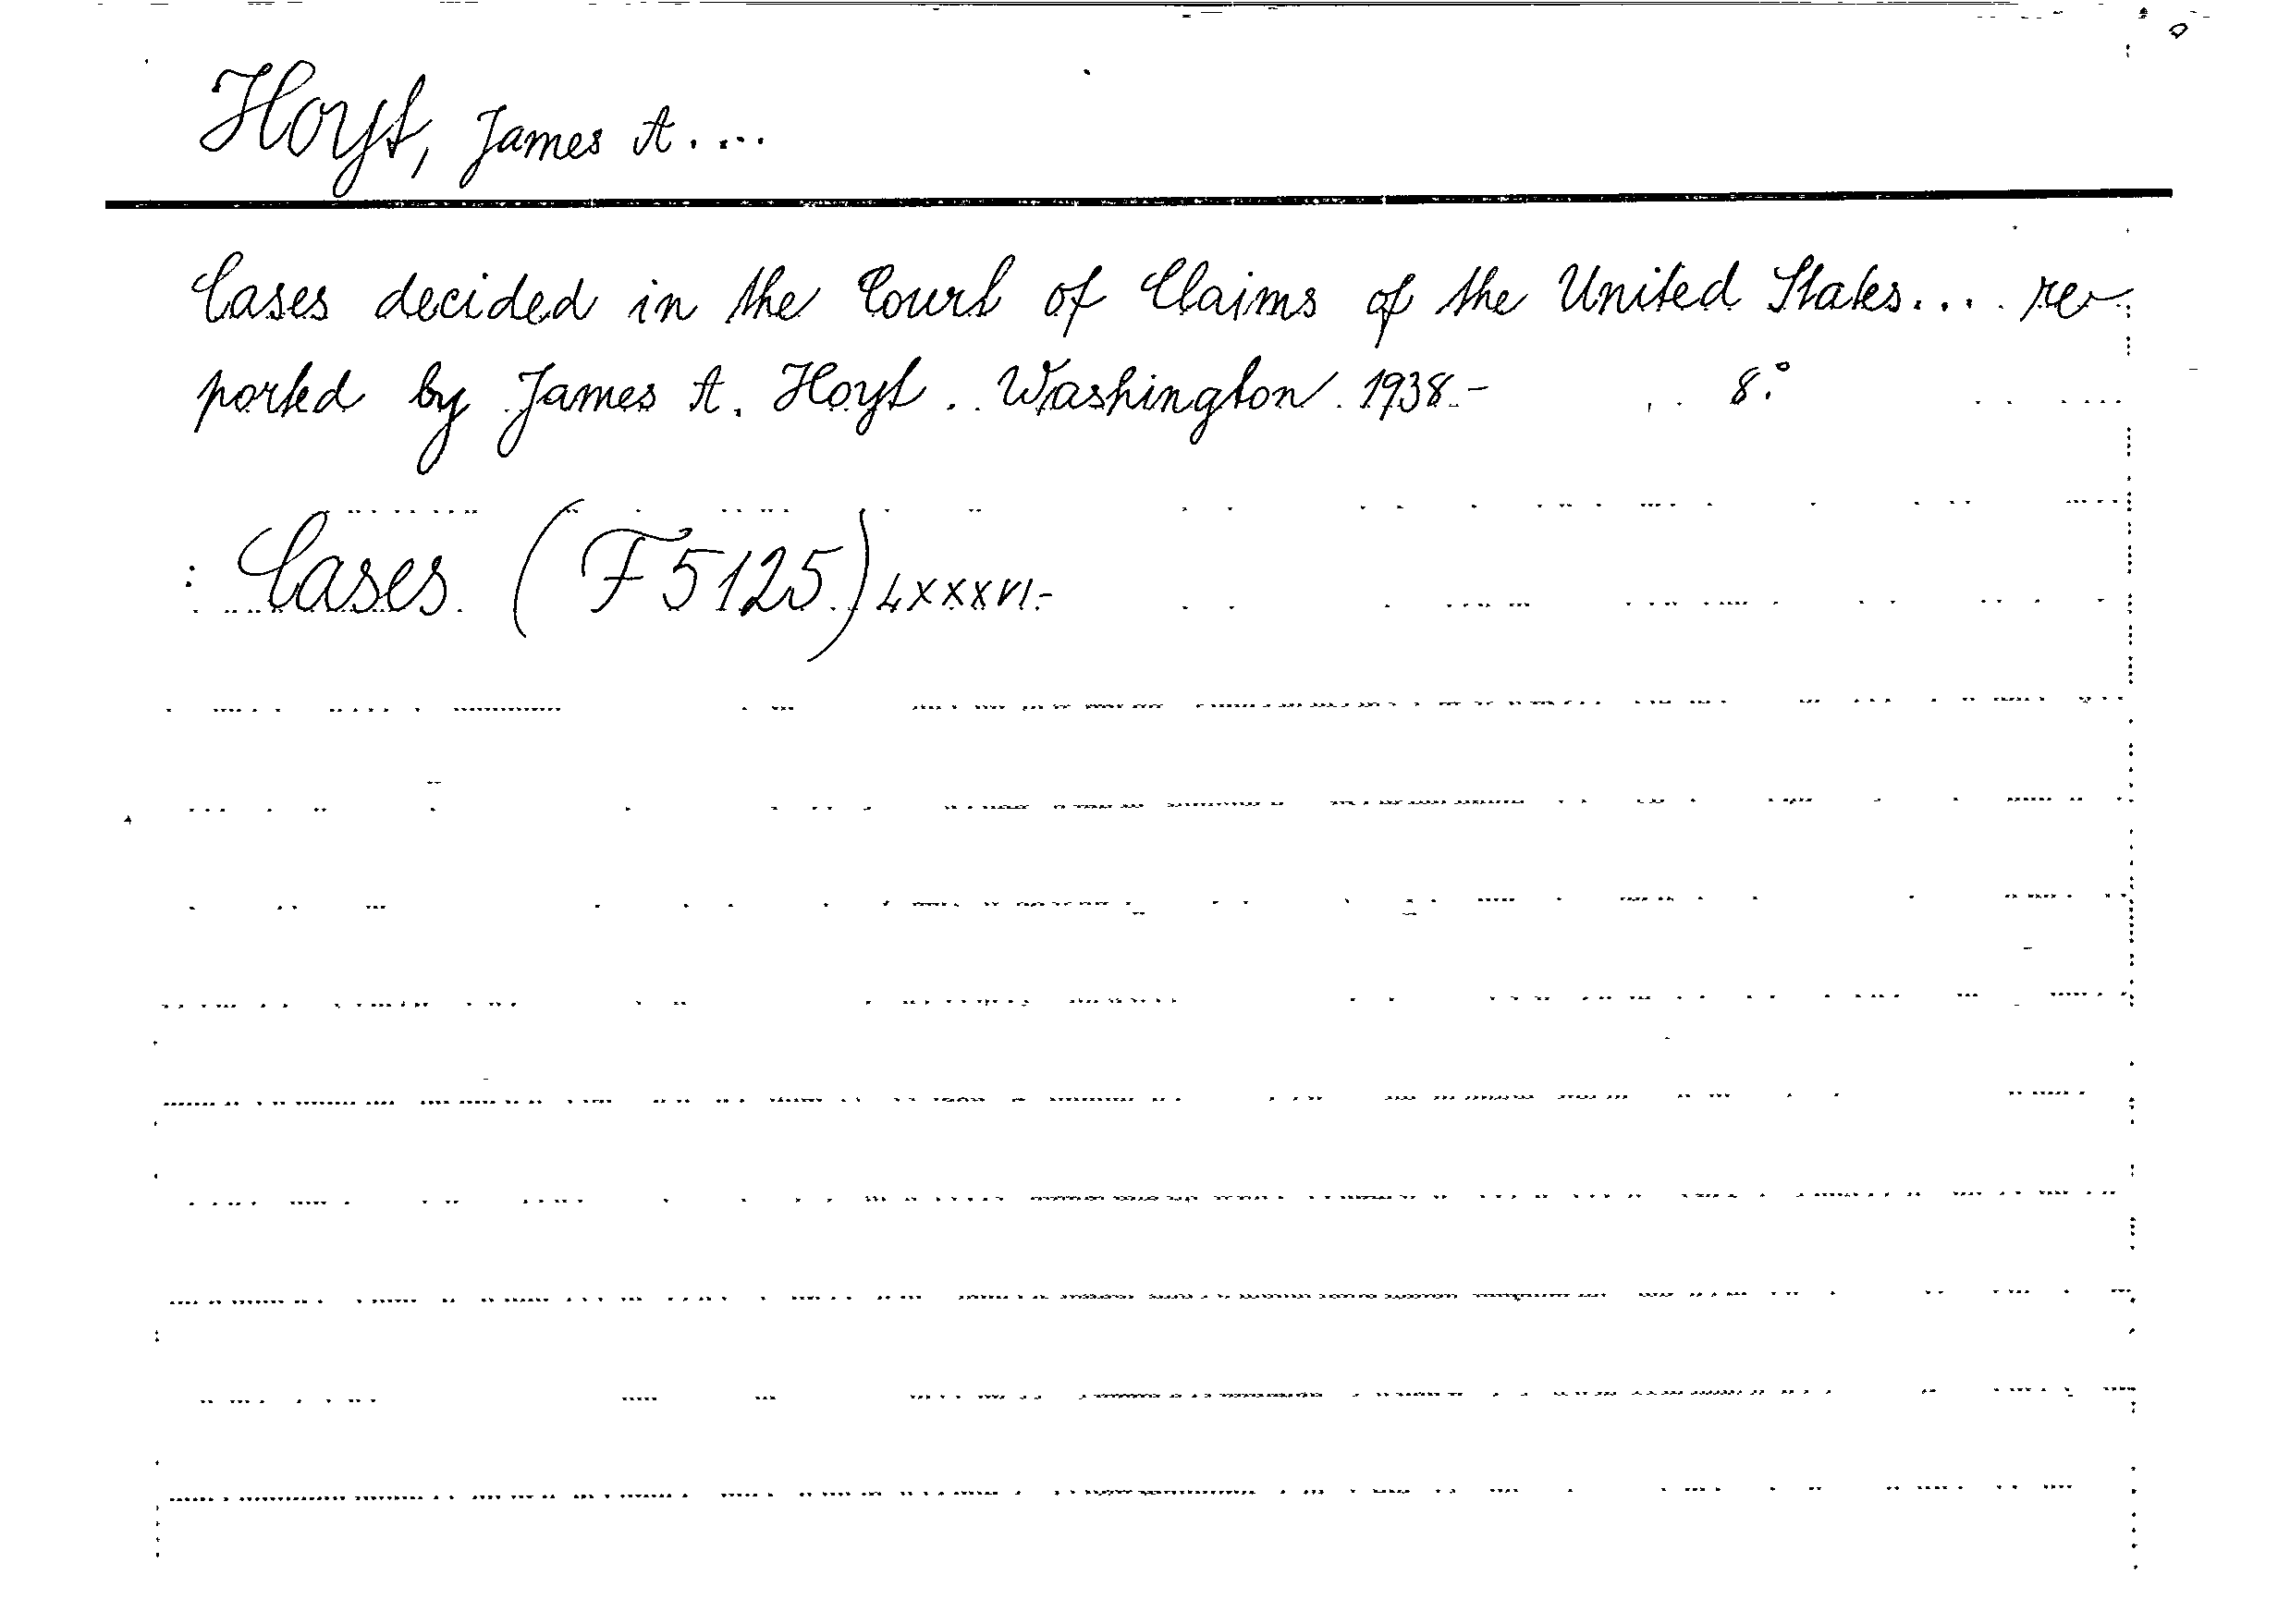 Hoyt, James A....
Cases decided in the Court of Claims of the United States.... re-
ported by James A. Hoyt. Washington. 1938.- 8.°
: Cases (F 5125) LXXXVI.-